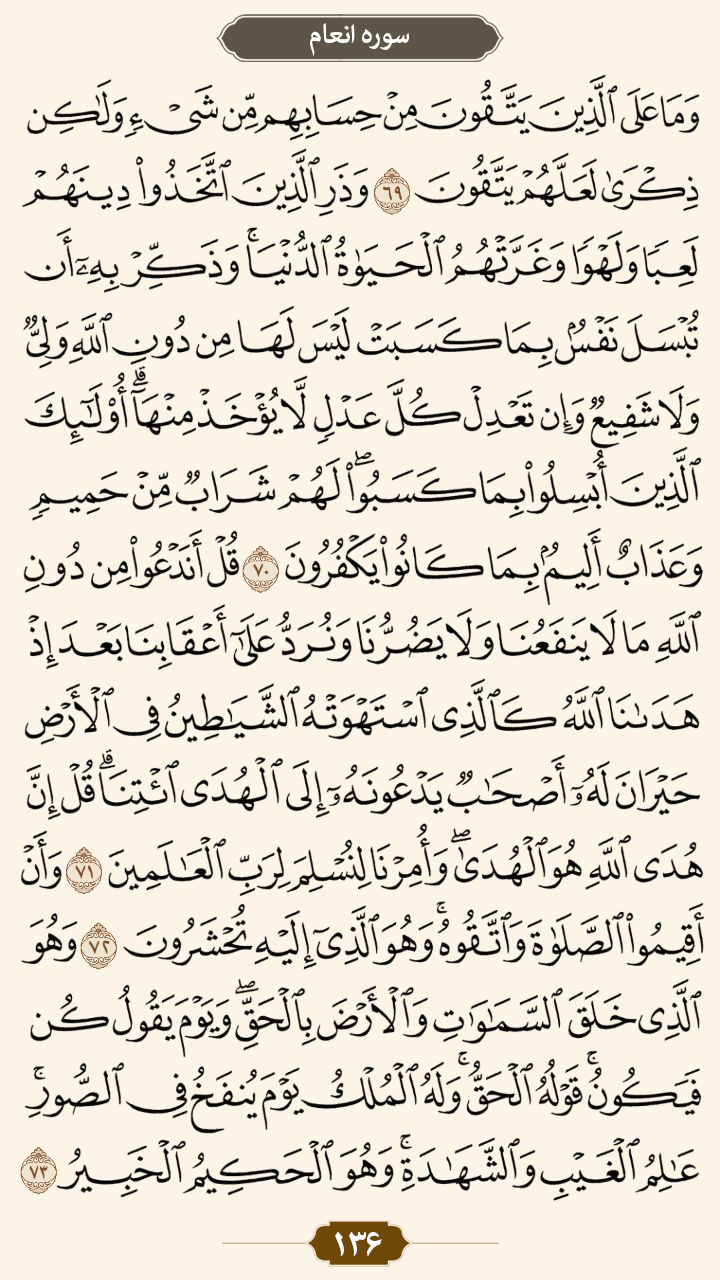 سوره انعام
وَمَا عَلَى ٱلَّذِينَ يَتَّقُونَ مِنْ حِسَابِهِم مِّن شَىْءٍ وَلَٰكِن
ذِكْرَىٰ لَعَلَّهُمْ يَتَّقُونَ ٦٩ وَذَرِ ٱلَّذِينَ ٱتَّخَذُوا۟ دِينَهُمْ
لَعِبًا وَلَهْوًا وَغَرَّتْهُمُ ٱلْحَيَوٰةُ ٱلدُّنْيَا ۚ وَذَكِّرْ بِهِۦٓ أَن
تُبْسَلَ نَفْسٌۢ بِمَا كَسَبَتْ لَيْسَ لَهَا مِن دُونِ ٱللَّهِ وَلِىٌّ
وَلَا شَفِيعٌ وَإِن تَعْدِلْ كُلَّ عَدْلٍ لَّا يُؤْخَذْ مِنْهَآ ۗ أُو۟لَٰٓئِكَ
ٱلَّذِينَ أُبْسِلُوا۟ بِمَا كَسَبُوا۟ ۖ لَهُمْ شَرَابٌ مِّنْ حَمِيمٍ
وَعَذَابٌ أَلِيمٌۢ بِمَا كَانُوا۟ يَكْفُرُونَ ٧٠ قُلْ أَنَدْعُوا۟ مِن دُونِ
ٱللَّهِ مَا لَا يَنفَعُنَا وَلَا يَضُرُّنَا وَنُرَدُّ عَلَىٰٓ أَعْقَابِنَا بَعْدَ إِذْ
هَدَىٰنَا ٱللَّهُ كَٱلَّذِى ٱسْتَهْوَتْهُ ٱلشَّيَٰطِينُ فِى ٱلْأَرْضِ
حَيْرَانَ لَهُۥٓ أَصْحَٰبٌ يَدْعُونَهُۥٓ إِلَى ٱلْهُدَى ٱئْتِنَا ۗ قُلْ إِنَّ
هُدَى ٱللَّهِ هُوَ ٱلْهُدَىٰ ۖ وَأُمِرْنَا لِنُسْلِمَ لِرَبِّ ٱلْعَٰلَمِينَ ٧١ وَأَنْ
أَقِيمُوا۟ ٱلصَّلَوٰةَ وَٱتَّقُوهُ ۚ وَهُوَ ٱلَّذِىٓ إِلَيْهِ تُحْشَرُونَ ٧٢ وَهُوَ
ٱلَّذِى خَلَقَ ٱلسَّمَٰوَٰتِ وَٱلْأَرْضَ بِٱلْحَقِّ ۖ وَيَوْمَ يَقُولُ كُن
فَيَكُونُ ۚ قَوْلُهُ ٱلْحَقُّ ۚ وَلَهُ ٱلْمُلْكُ يَوْمَ يُنفَخُ فِى ٱلصُّورِ ۚ
عَٰلِمُ ٱلْغَيْبِ وَٱلشَّهَٰدَةِ ۚ وَهُوَ ٱلْحَكِيمُ ٱلْخَبِيرُ ٧٣
۱۳۶